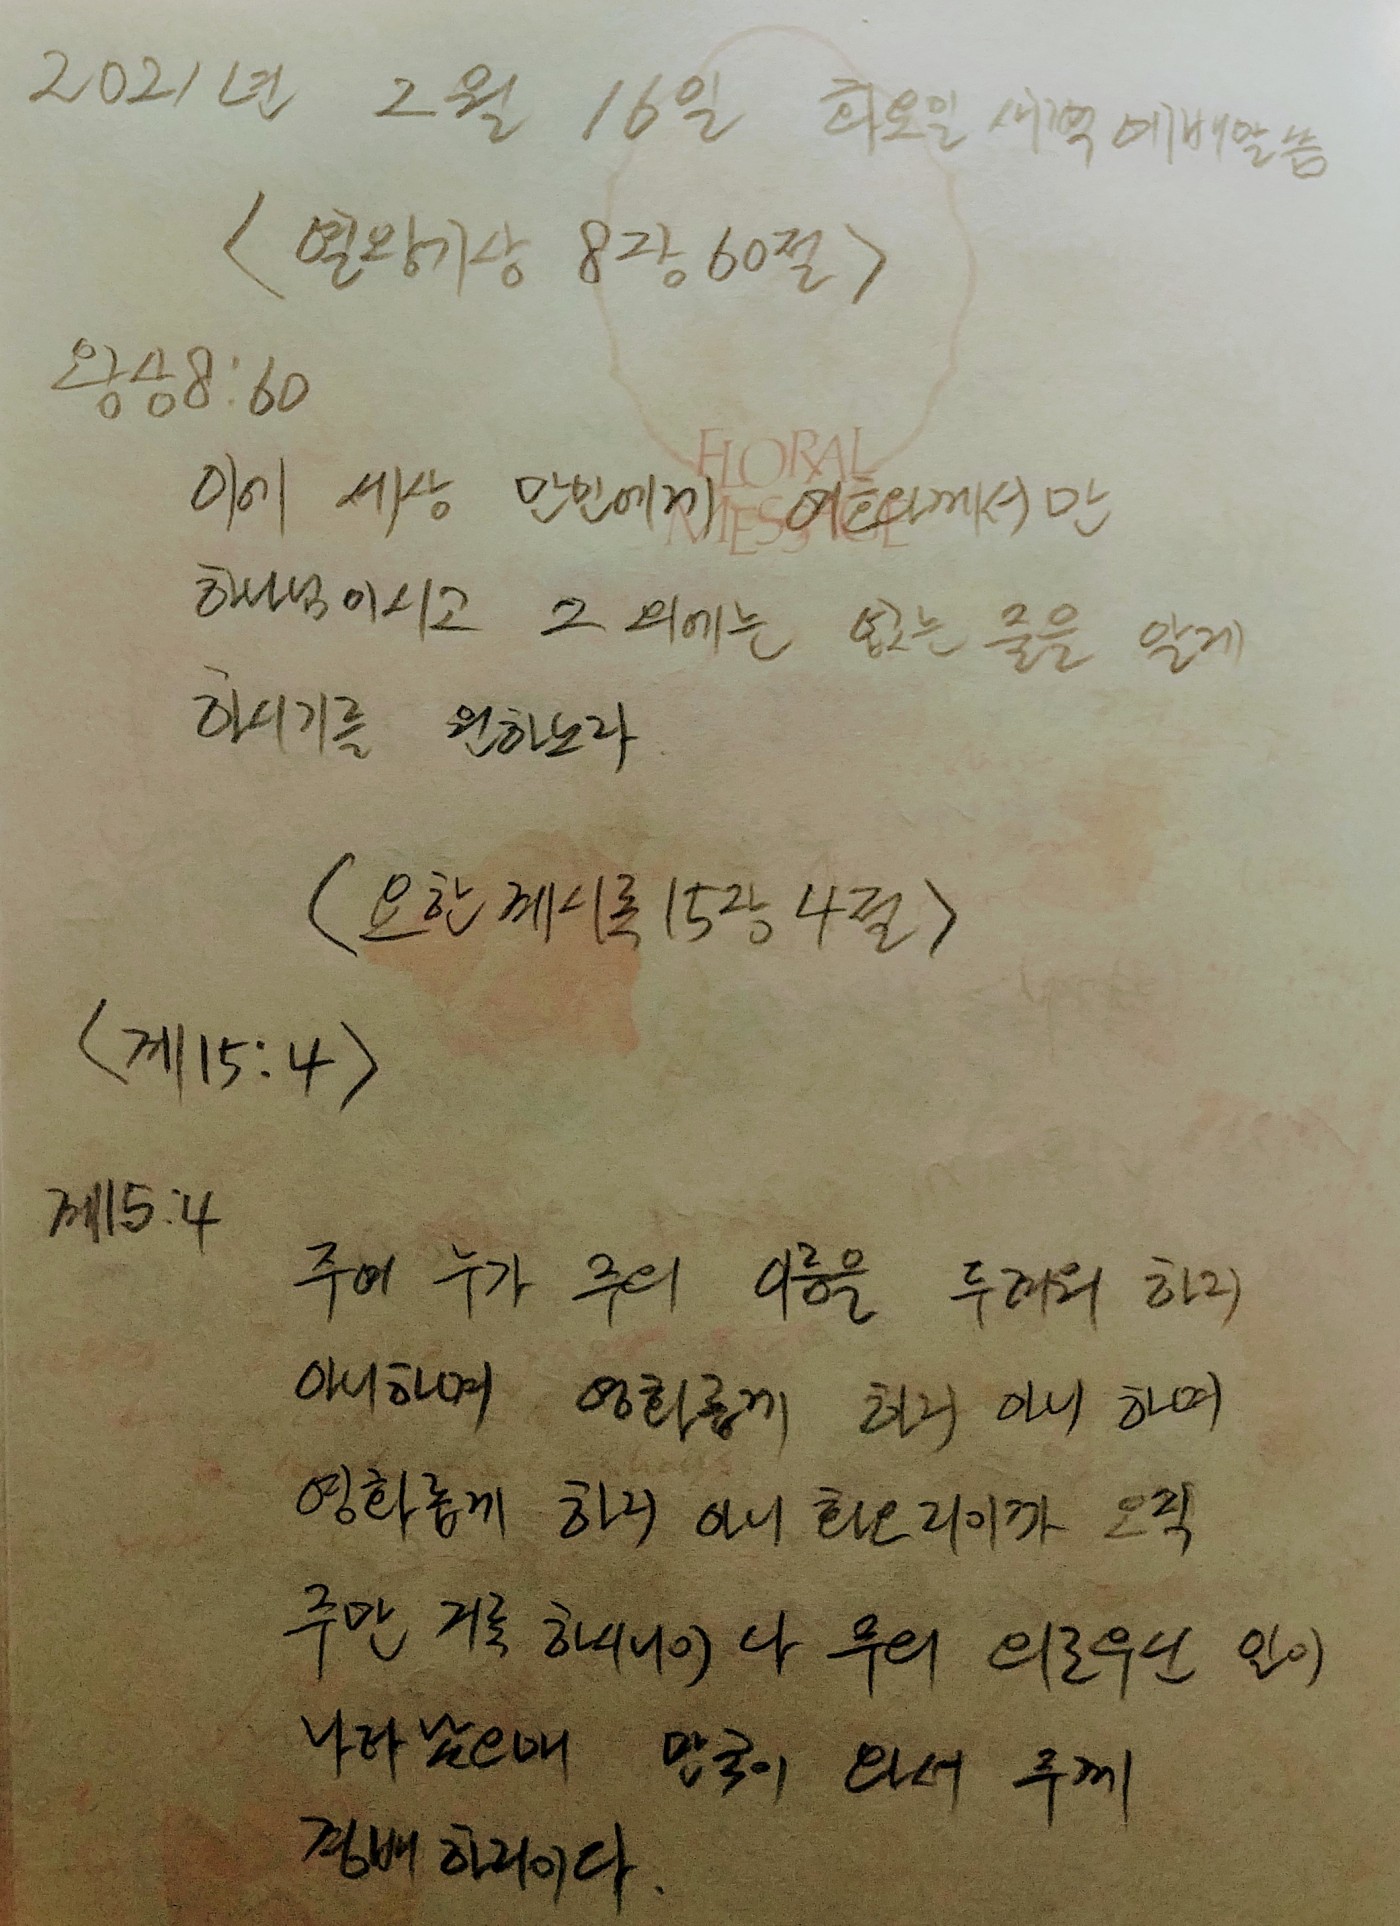 2021년 2월 16일 화요일 새벽예배말씀
<열왕기상 8장 60절>
왕상8:60
FLORAL
MESSAGE
이에 세상 만민에게 여호와께서만
하나님이시고 그 외에는 없는 줄을 알게
하시기를 원하노라.
<요한계시록 15장 4절>
<계15:4>
계15:4
주여 누가 주의 이름을 두려워 하리
아니하며 영화롭게 하리 아니 하며
영화롭게 하리 아니 하오리이까 오직
주만 거룩 하시니이다 주의 의로우신 일이
나타났으매 만국이 와서 주께
경배하리이다.